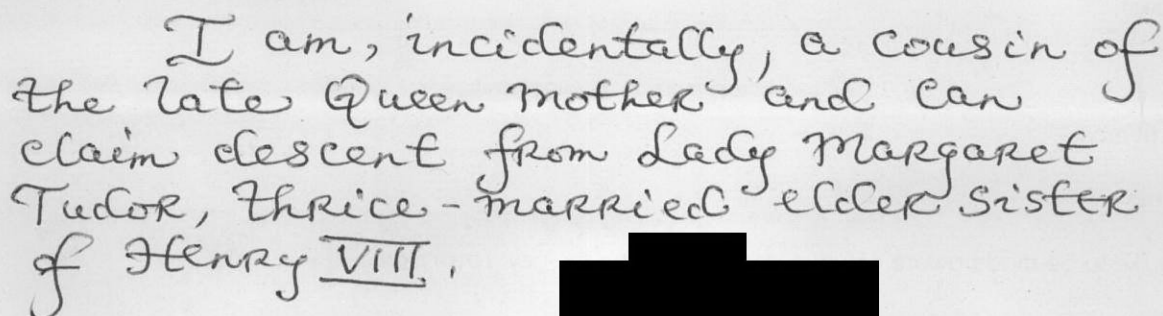 I am, incidentally, a cousin of
the late Queen Mother and can
claim descent from Lady Margaret
Tudor, thrice-married elder sister
of Henry VIII.